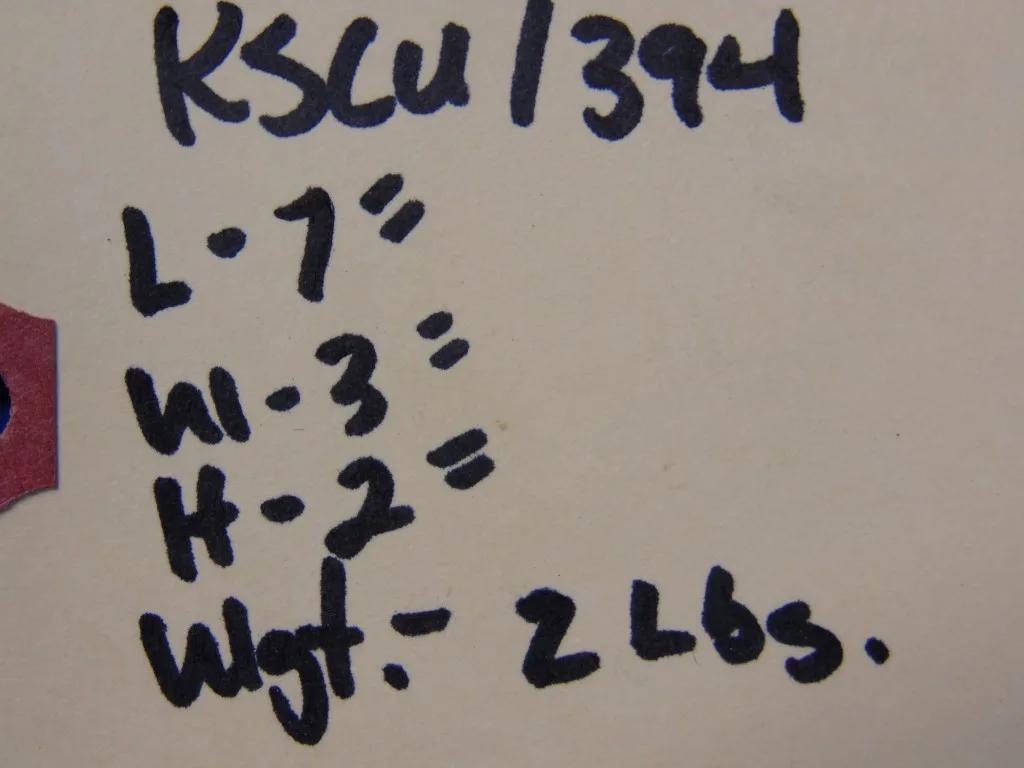 KSCU/394
L-7"
W-3"
H-2"
Wgt.- 2 Lbs.